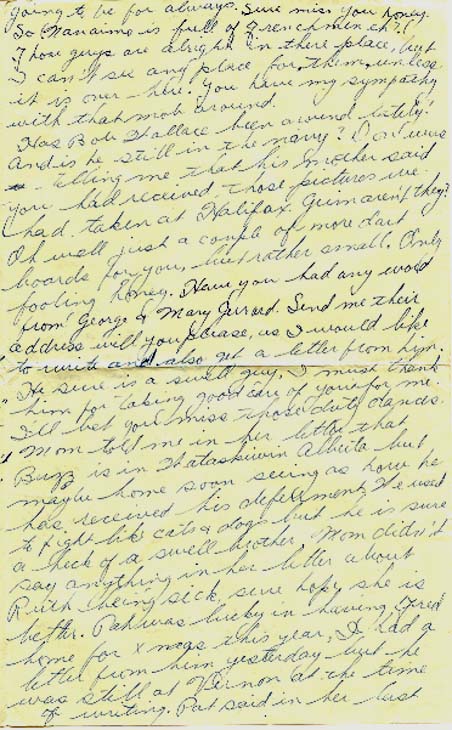 going to be for always. Sure miss you honey.
So Nanaimo is full of Frenchmen eh?!
Those guys are alright in there place, but
I can't see any place for them, unless
it is over here. You have my sympathy
with that mob around.
Has Bob Wallace been around lately?
And is he still in the navy? Don was
telling me that his mother said
you had received those pictures we
had taken at Halifax. Grim aren't they?
Oh well just a couple of more dart
boards for you, but rather small. Only
fooling honey. Have you had any word
from George & Mary Girard. Send me their
address will you please, as I would like
to write and also get a letter from him.
He sure is a swell guy, I must thank
him for taking good care of you for me.
I'll bet you miss those duty dands.
Mom told me in her letter that
Buzz is in Wataskiwin Alberta but
maybe home soon seeing as how he
has received his deferment. We used
to fight like cats & dogs but he is sure
a heck of a swell brother. Mom didn't
say anything in her letter about
Ruth being sick, sure hope she is
better. Pat was lucky in having Fred
home for Xmas this year, I had a
letter from him yesterday but he
was still at Vernon at the time
of writing. Pat said in her last